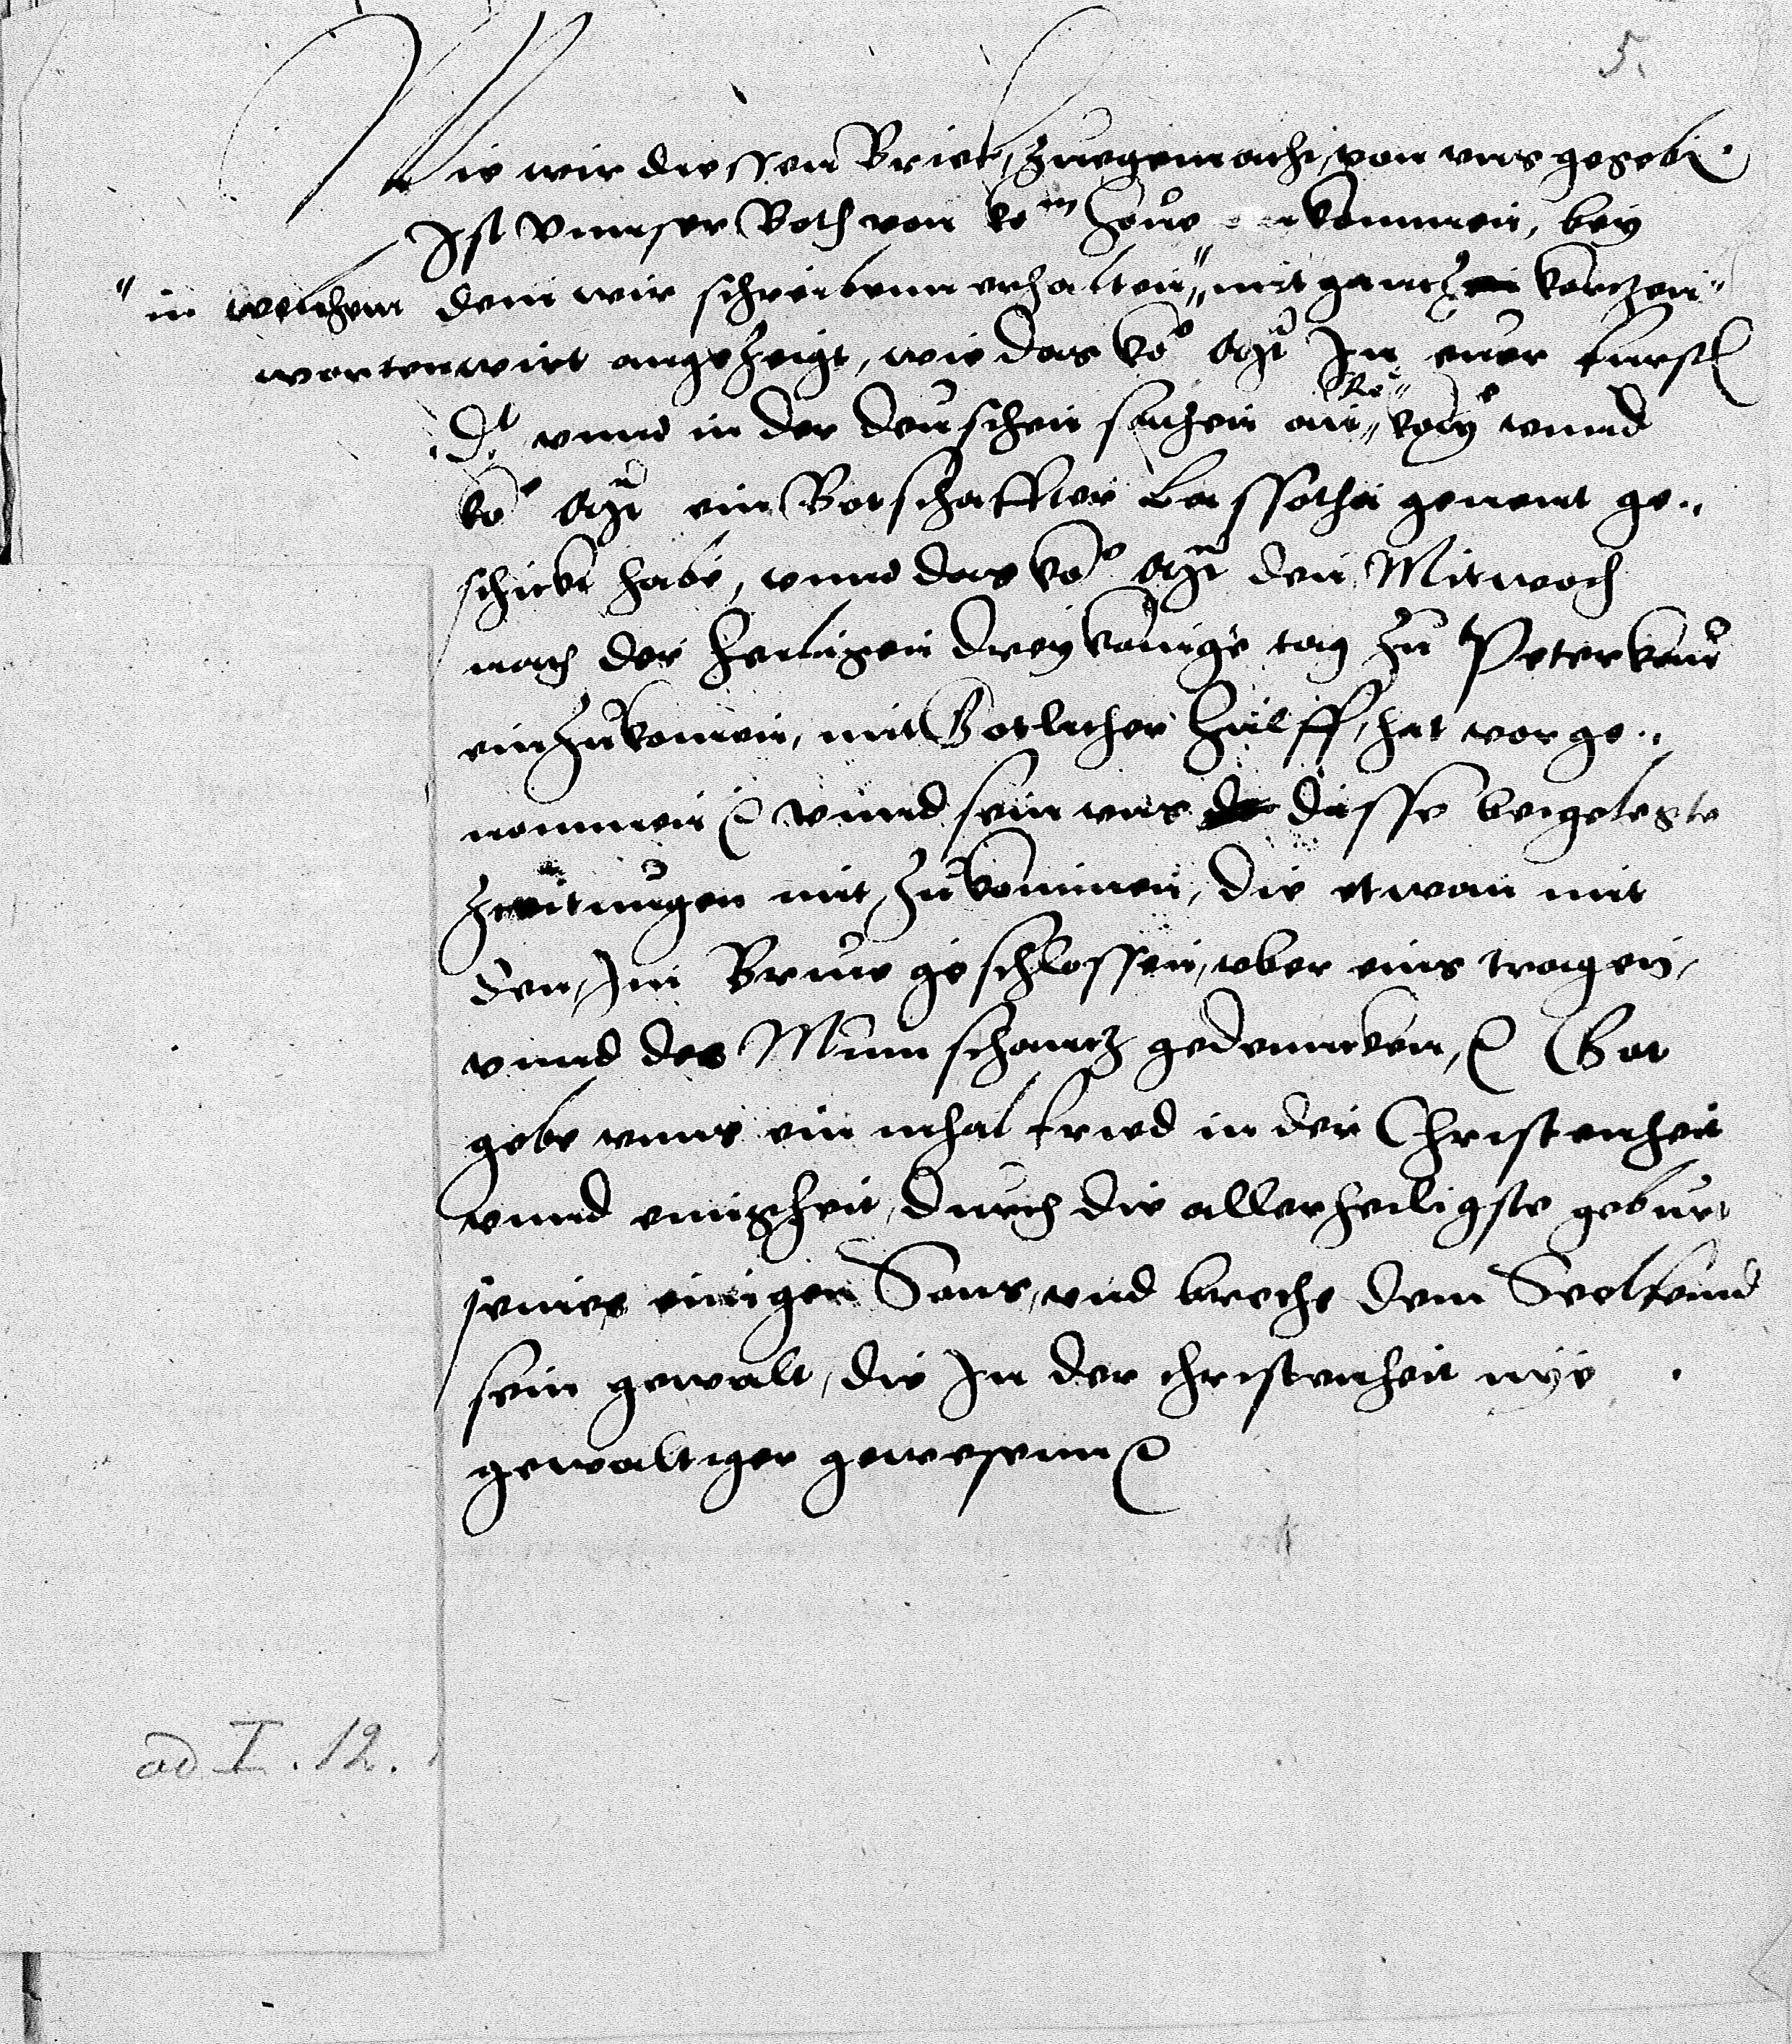 5.
Wie wir diessen Brief, zuegemacht, von vns geseh
Ist vnnser Both von ko houe ankommen, bey
"in welchem dem wir schreibenn erhalten," mit gantz kortzen
worten wirt angezeigt, wie das ko Mt In euer furstl
.Dt. vnnd in der deuschen sachen an Ro kay vnnd
ko Mt ein Botschaffter Lassotha genent ge,,
schickt habe, vnnd das ko Mt den Mitwoch
nach der heiligen drey konige tag zu Peterkau
einzukomen, mit Gotlicher hulff, hat vorge,,
nommen vnnd sein vns disse beigelegte
zeitungen mit zukommen, die etwan mit
den, Im Briue geschlossen, vber eins tragen,
vnnd des Mumschantz gedenncken, Got
gebe vnns ein mhal fried in der Christenheit
vnnd einigheit, durch die allerheiligste geburt
seines einigen Sons, vnd breche dem Seelfeind
sein gewalt, die In der christenheit nye
gewaltiger gewesenn
ad I. 12.